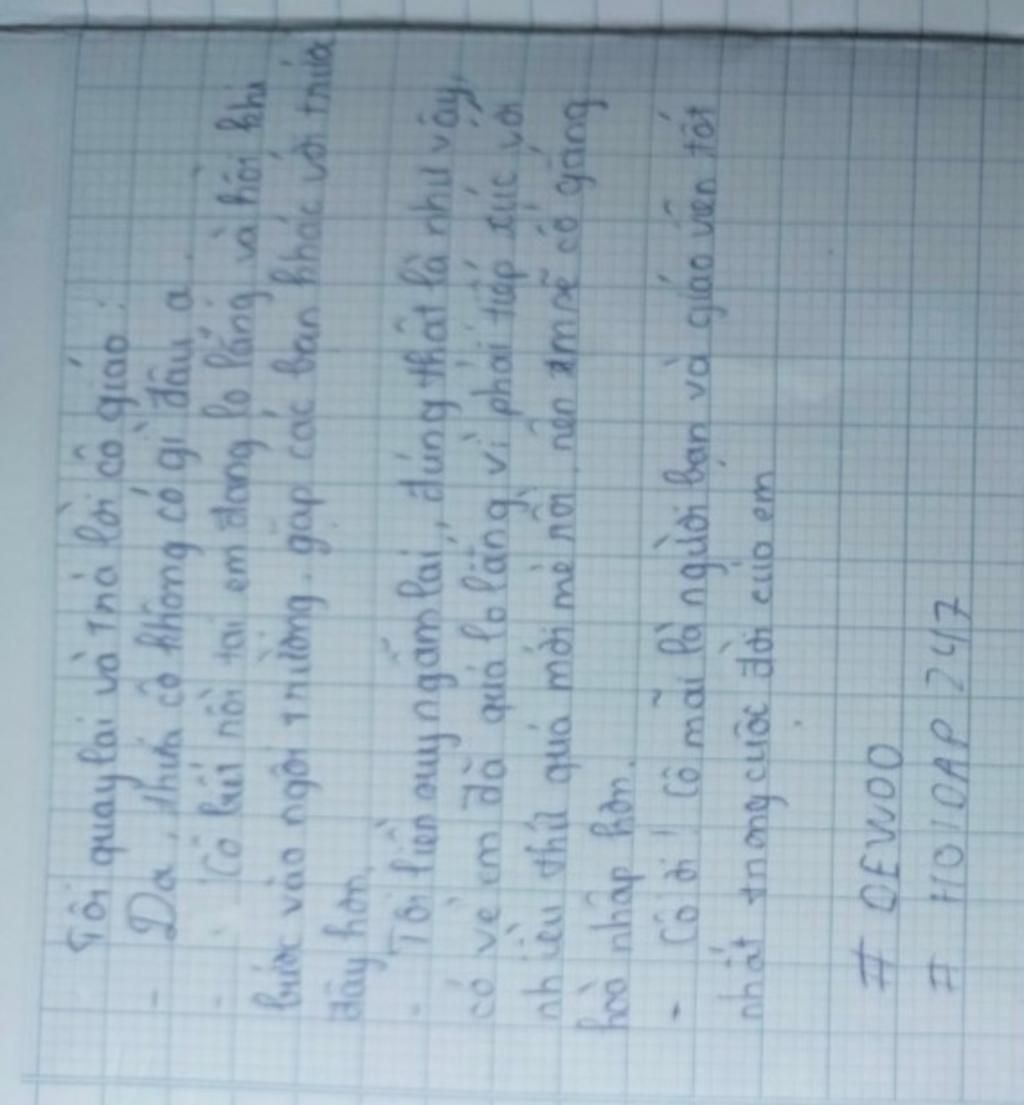 Tôi quay lại và trả lời cô giáo:
- Dạ, thưa cô không có gì đâu ạ.
- Cô biết nỗi tại em đang lo lắng và hồi khi
bước vào ngôi trường. gặp các bạn khác với trước
đây hơn.
- Tôi liền suy ngẫm lại, đúng thật là như vậy,
có vẻ em đã quá lo lắng vì phải tiếp xúc với
nhiều thứ quá mới mẻ rồi, nên em sẽ cố gắng
hoà nhập hơn.
- Cô ơi! Cô mãi là người bạn và giáo viên tốt
nhất trong cuộc đời của em
# OEWOO
# HOIOAP 247